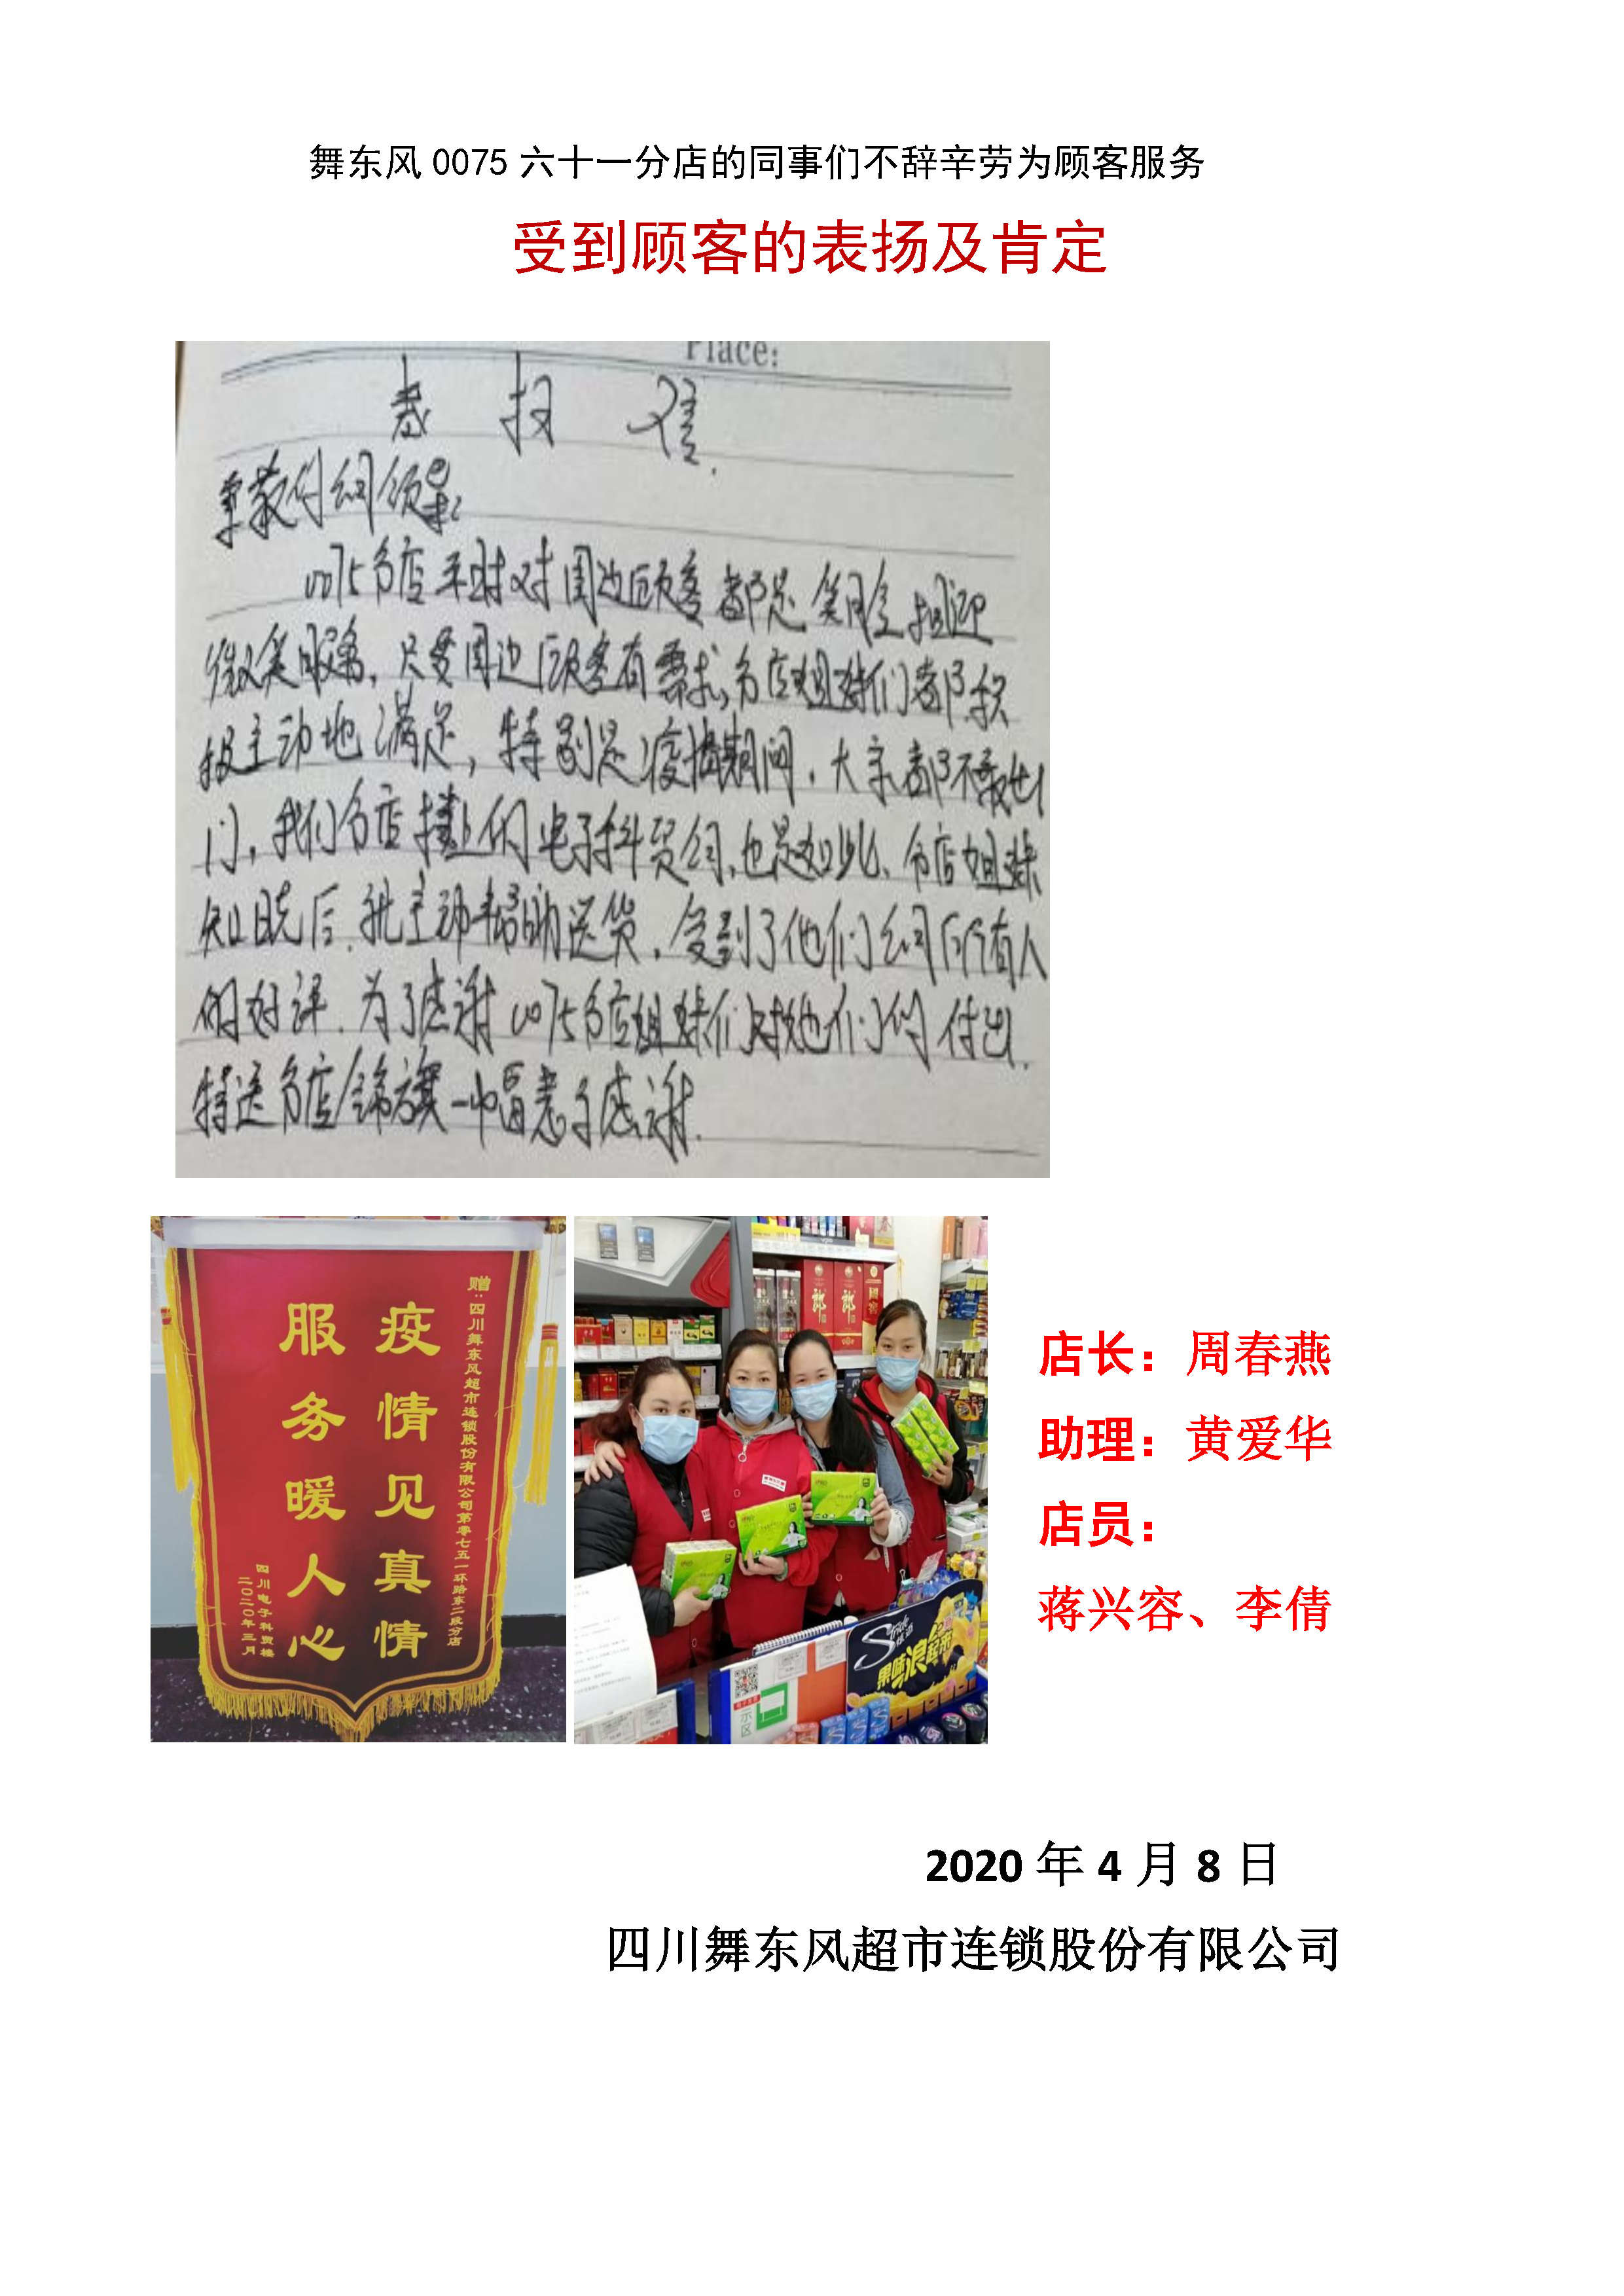 舞东风 0075 六十一分店的同事们不辞辛劳为顾客服务
受到顾客的表扬及肯定
Place:
表扬信
尊敬的公司领导:
0075分店平时对周边顾客都是笑脸相迎
微笑服务,只要周边顾客有需求,分店姐妹们都积
极主动地满足,特别是疫情期间,大家都不敢出
门,我们分店楼上的电子科贸公司,也是如此、分店姐妹
知晓后,就主动帮助送货,受到了他们公司所有人
的好评.为了感谢0075分店姐妹们对她们的付出.
特送分店锦旗一幅表示感谢.
赠:四川舞东风超市连锁股份有限公司第零七五一环路东二段分店
疫情见真情
服务暖人心
四川电子科贸楼
二〇二〇年三月
郎
郎
Stride
炫迈
果味浪起来
示区
店长：周春燕
助理：黄爱华
店员：
蒋兴容、李倩
2020 年 4 月 8 日
四川舞东风超市连锁股份有限公司